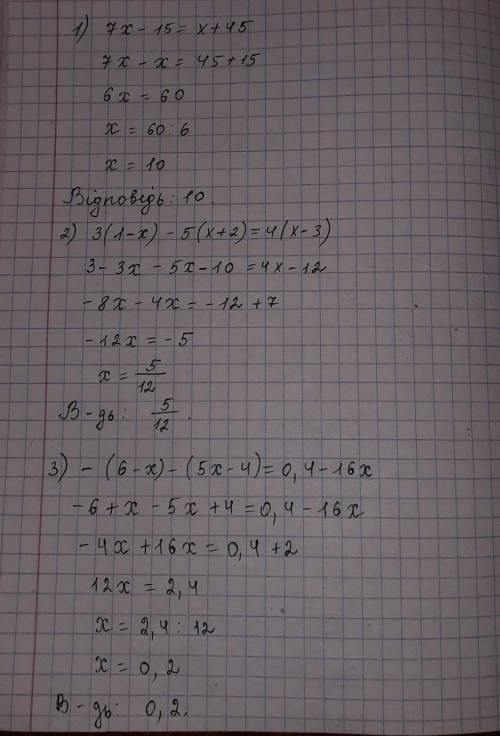 1) 7x - 15 = x + 45
7x - x = 45 + 15
6x = 60
x = 60 : 6
x = 10
Відповідь: 10.
2) 3(1-x) - 5(x+2) = 4(x-3)
3 - 3x - 5x - 10 = 4x - 12
-8x - 4x = -12 + 7
-12x = -5
x = 5/12
В-дь: 5/12.
3) - (6-x) - (5x-4) = 0,4 - 16x
-6 + x - 5x + 4 = 0,4 - 16x
-4x + 16x = 0,4 + 2
12x = 2,4
x = 2,4 : 12
x = 0,2
В-дь: 0,2.